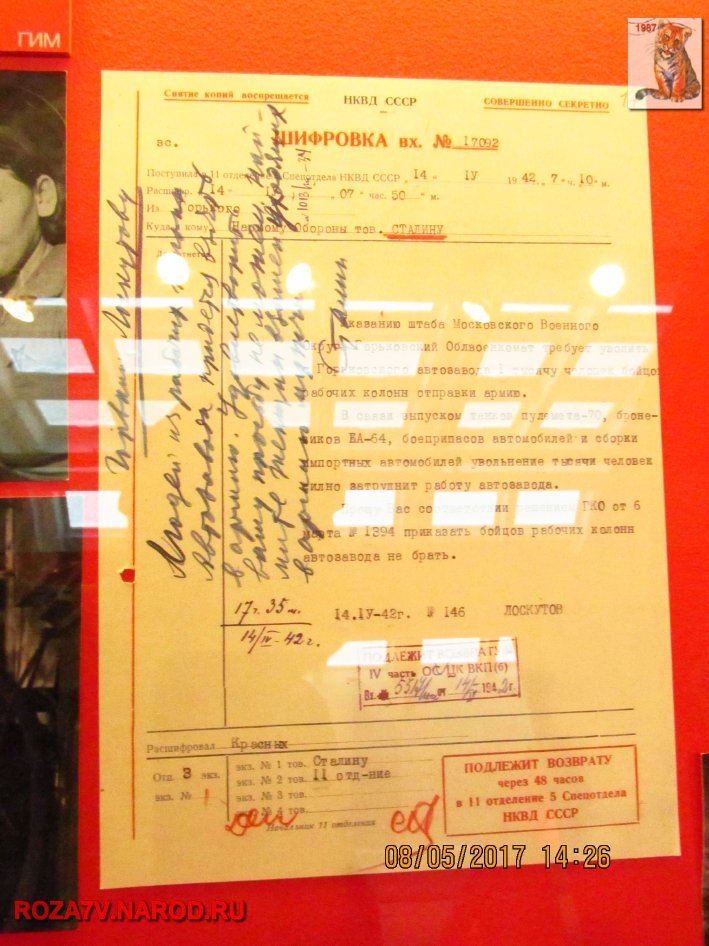 ГИМ
1987
Снятие копий воспрещается
НКВД СССР
СОВЕРШЕННО СЕКРЕТНО
вс.
ШИФРОВКА вх. № 17092
Поступила в 11 отделение Спецотдела НКВД СССР „ 14 " IV 1942 „ 7 ч. 10 м.
Расшифр. 14 07 час. 50 м.
Из Горького
Куда и кому Наркому Обороны тов. СТАЛИНУ
Указанию штаба Московского Военного
Округа Горьковский Облвоенкомат требует уволить
Горьковского автозавода 1 тысячу человек бойцов
рабочих колонн отправки армию.
В связи выпуском танков пулемета-70, броне-
виков БА-64, боеприпасов автомобилей и сборки
импортных автомобилей увольнение тысячи человек
сильно затруднит работу автозавода.
Прошу Вас соответствии решением ГКО от 6
марта № 1394 приказать бойцов рабочих колонн
автозавода не брать.
14.IУ-42г. № 146 ЛОСКУТОВ
Горький Лоскутову
Людей из рабочих колонн
Автозавода придется взять
в армию. Удовлетворить
вашу просьбу не можем. Най-
дите
в армию
Сталин
17 ч. 35 м.
14/IV-42 г.
ПОДЛЕЖИТ ВОЗВРАТУ в
IV часть ОС ЦК ВКП(б)
Вх. № от 194 2 г.
Расшифровал Красных
Отп. 3 экз.
экз. №
экз. № 1 тов. Сталину
экз. № 2 тов. II отд-ние
экз. № 3 тов.
№ 4 тов.
Начальник 11 отделения
ПОДЛЕЖИТ ВОЗВРАТУ
через 48 часов
в 11 отделение 5 Спецотдела
НКВД СССР
08/05/2017 14:26
ROZA7V.NAROD.RU